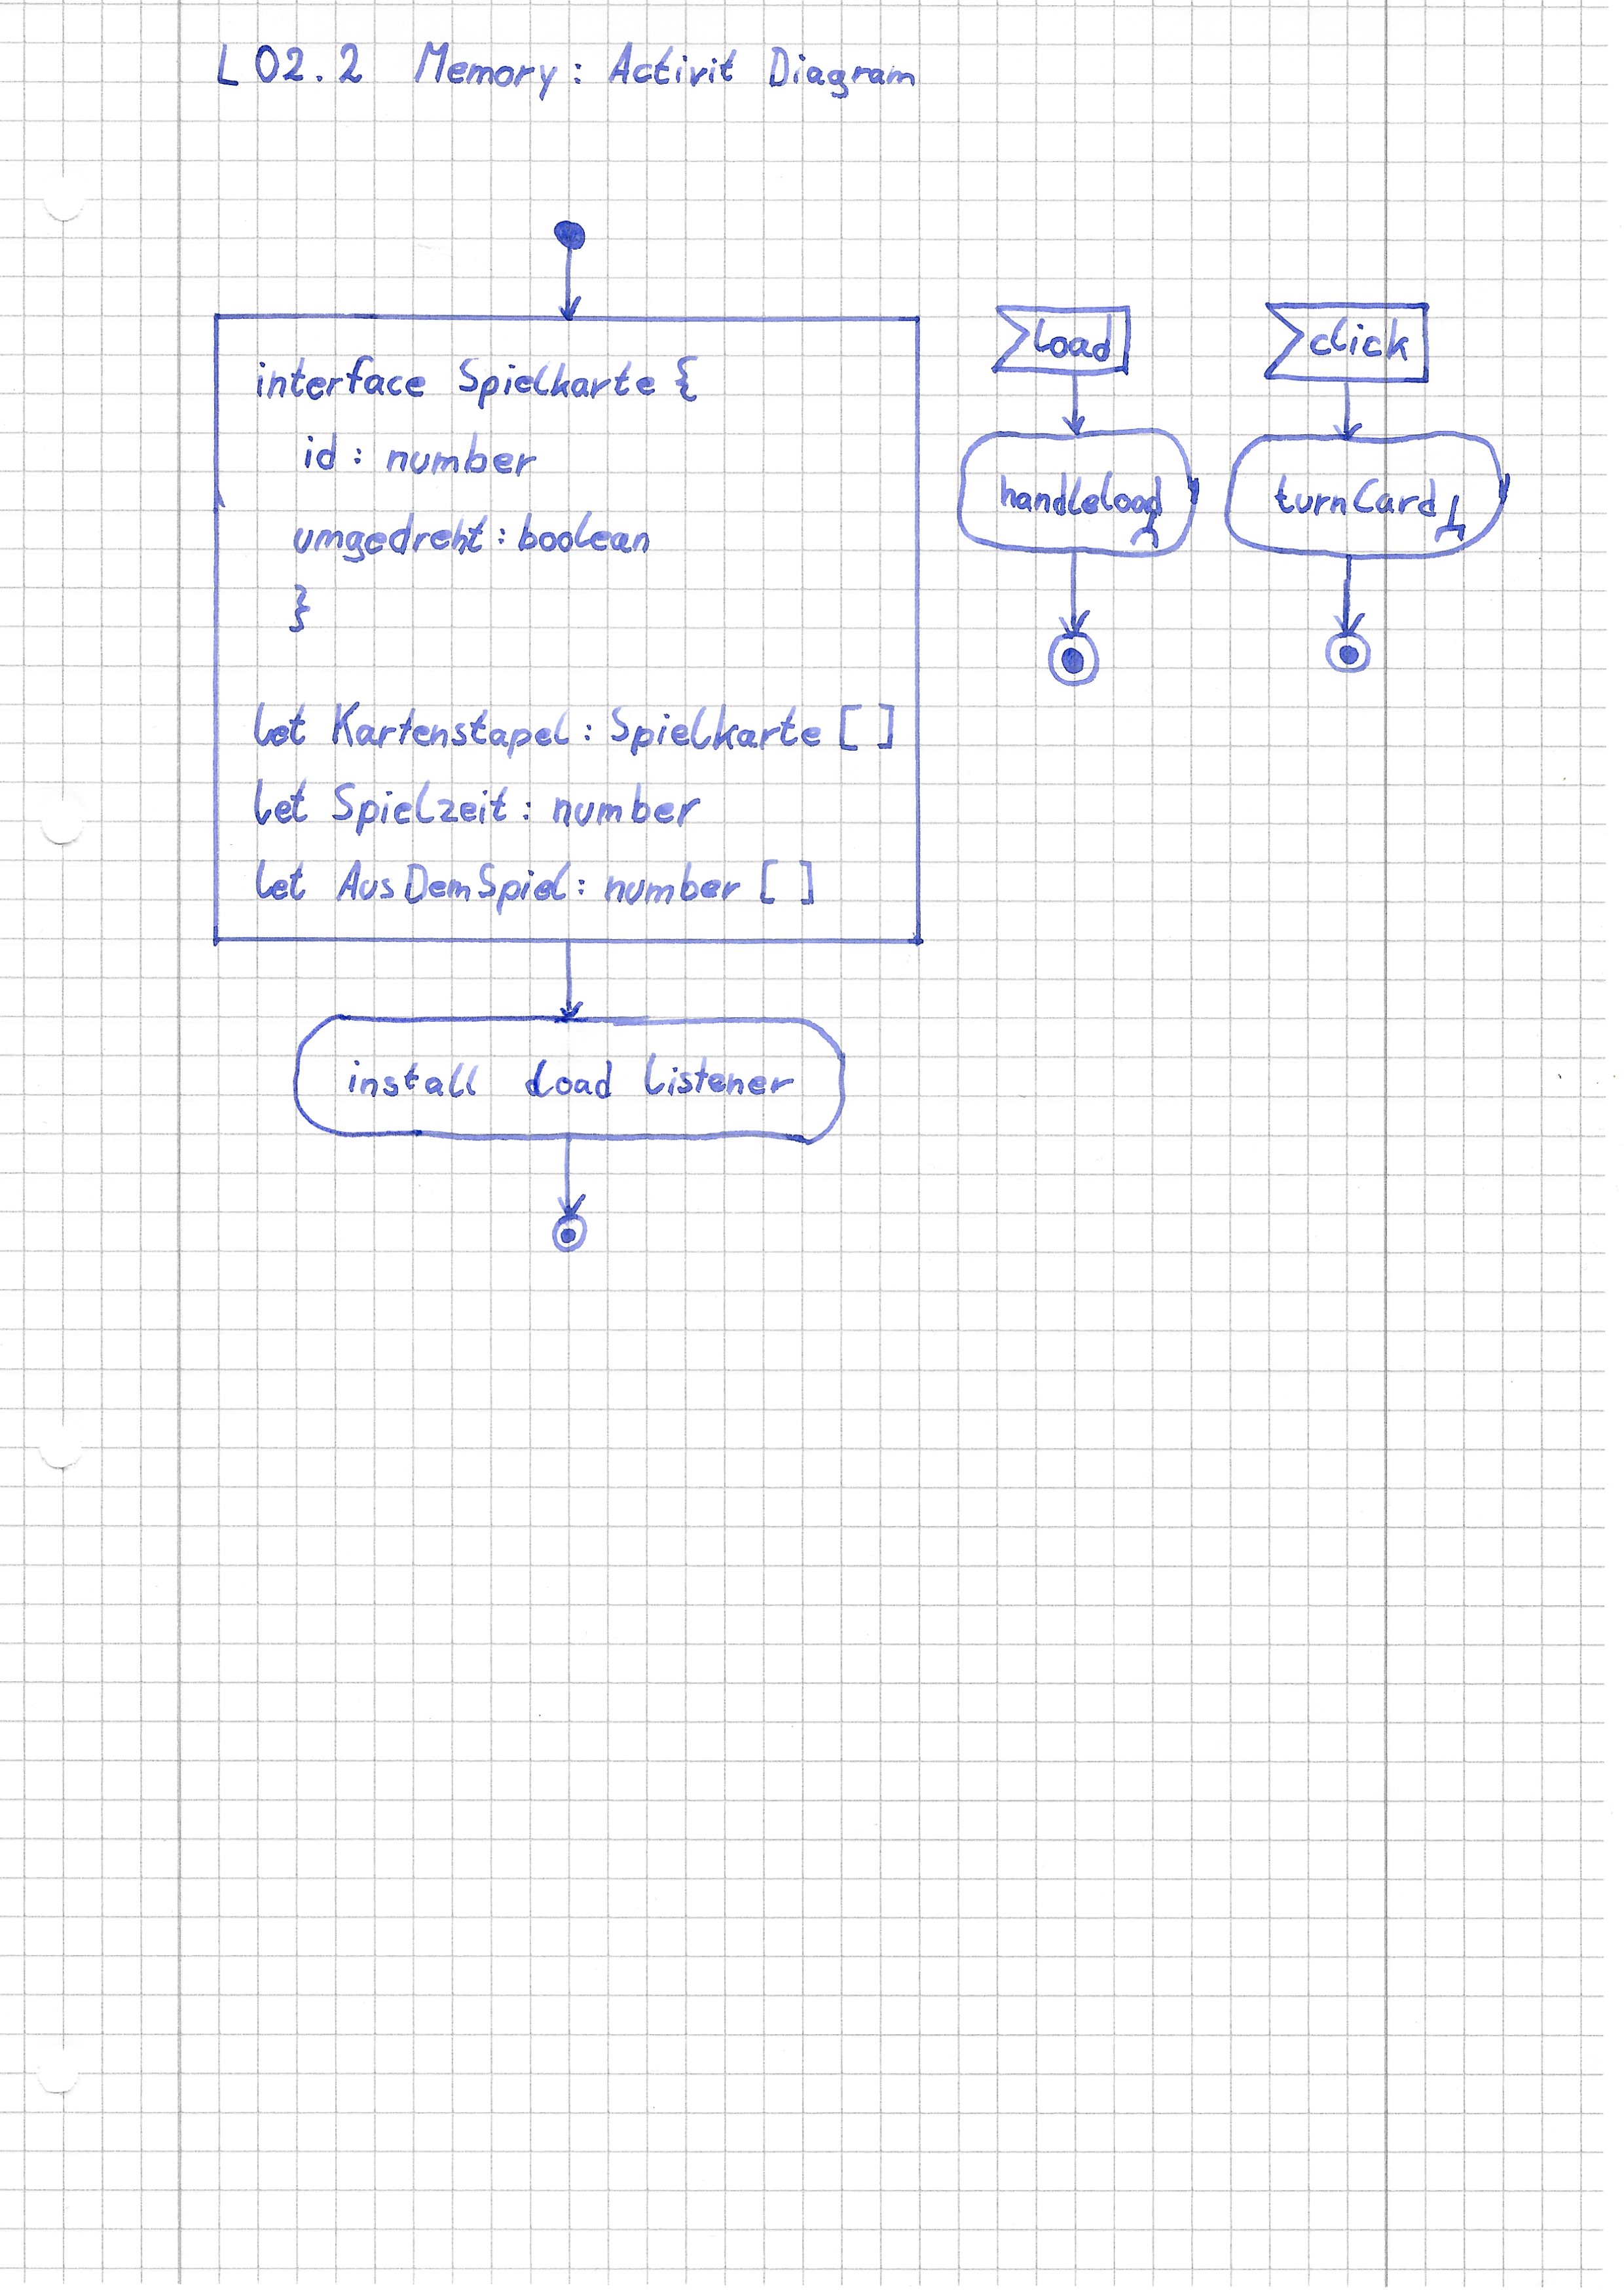 L02.2 Memory: Activit Diagram
interface Spielkarte {
id: number
umgedreht: boolean
}
let Kartenstapel: Spielkarte []
let Spielzeit: number
let AusDemSpiel: number []
install load listener
load
handleload
click
turnCard